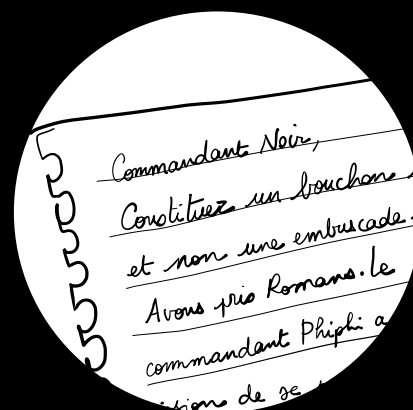 Commandant Noir,
Constituez un bouchon
et non une embuscade.
Avons pris Romans. Le
commandant Phiphi a
ision de se